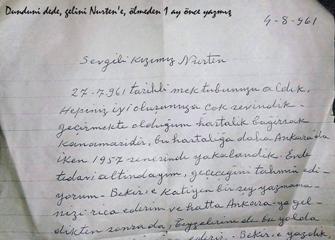 Dunduni dede, gelini Nurten'e, ölmeden 1 ay önce yazmış
4-8-961
Sevgili Kızımız Nurten
27-7-961 tarihli mektubunuzu aldık,
Hepiniz iyi oluşunuza çok sevindik-
geçirmekte olduğum hastalık bağırsak
kanamasıdır, bu hastalığa daha Ankara'da
iken 1957 senesinde yakalandık. Evde
tedavi altındayım, geçeceğini tahmin edi-
yorum- Bekir'e katiyen bir şey yazmama-
nızı rica ederim ve hatta Ankara-ya gel-
dikten sonra da, de bu yolda
ederiz- Bekir-e yazdık